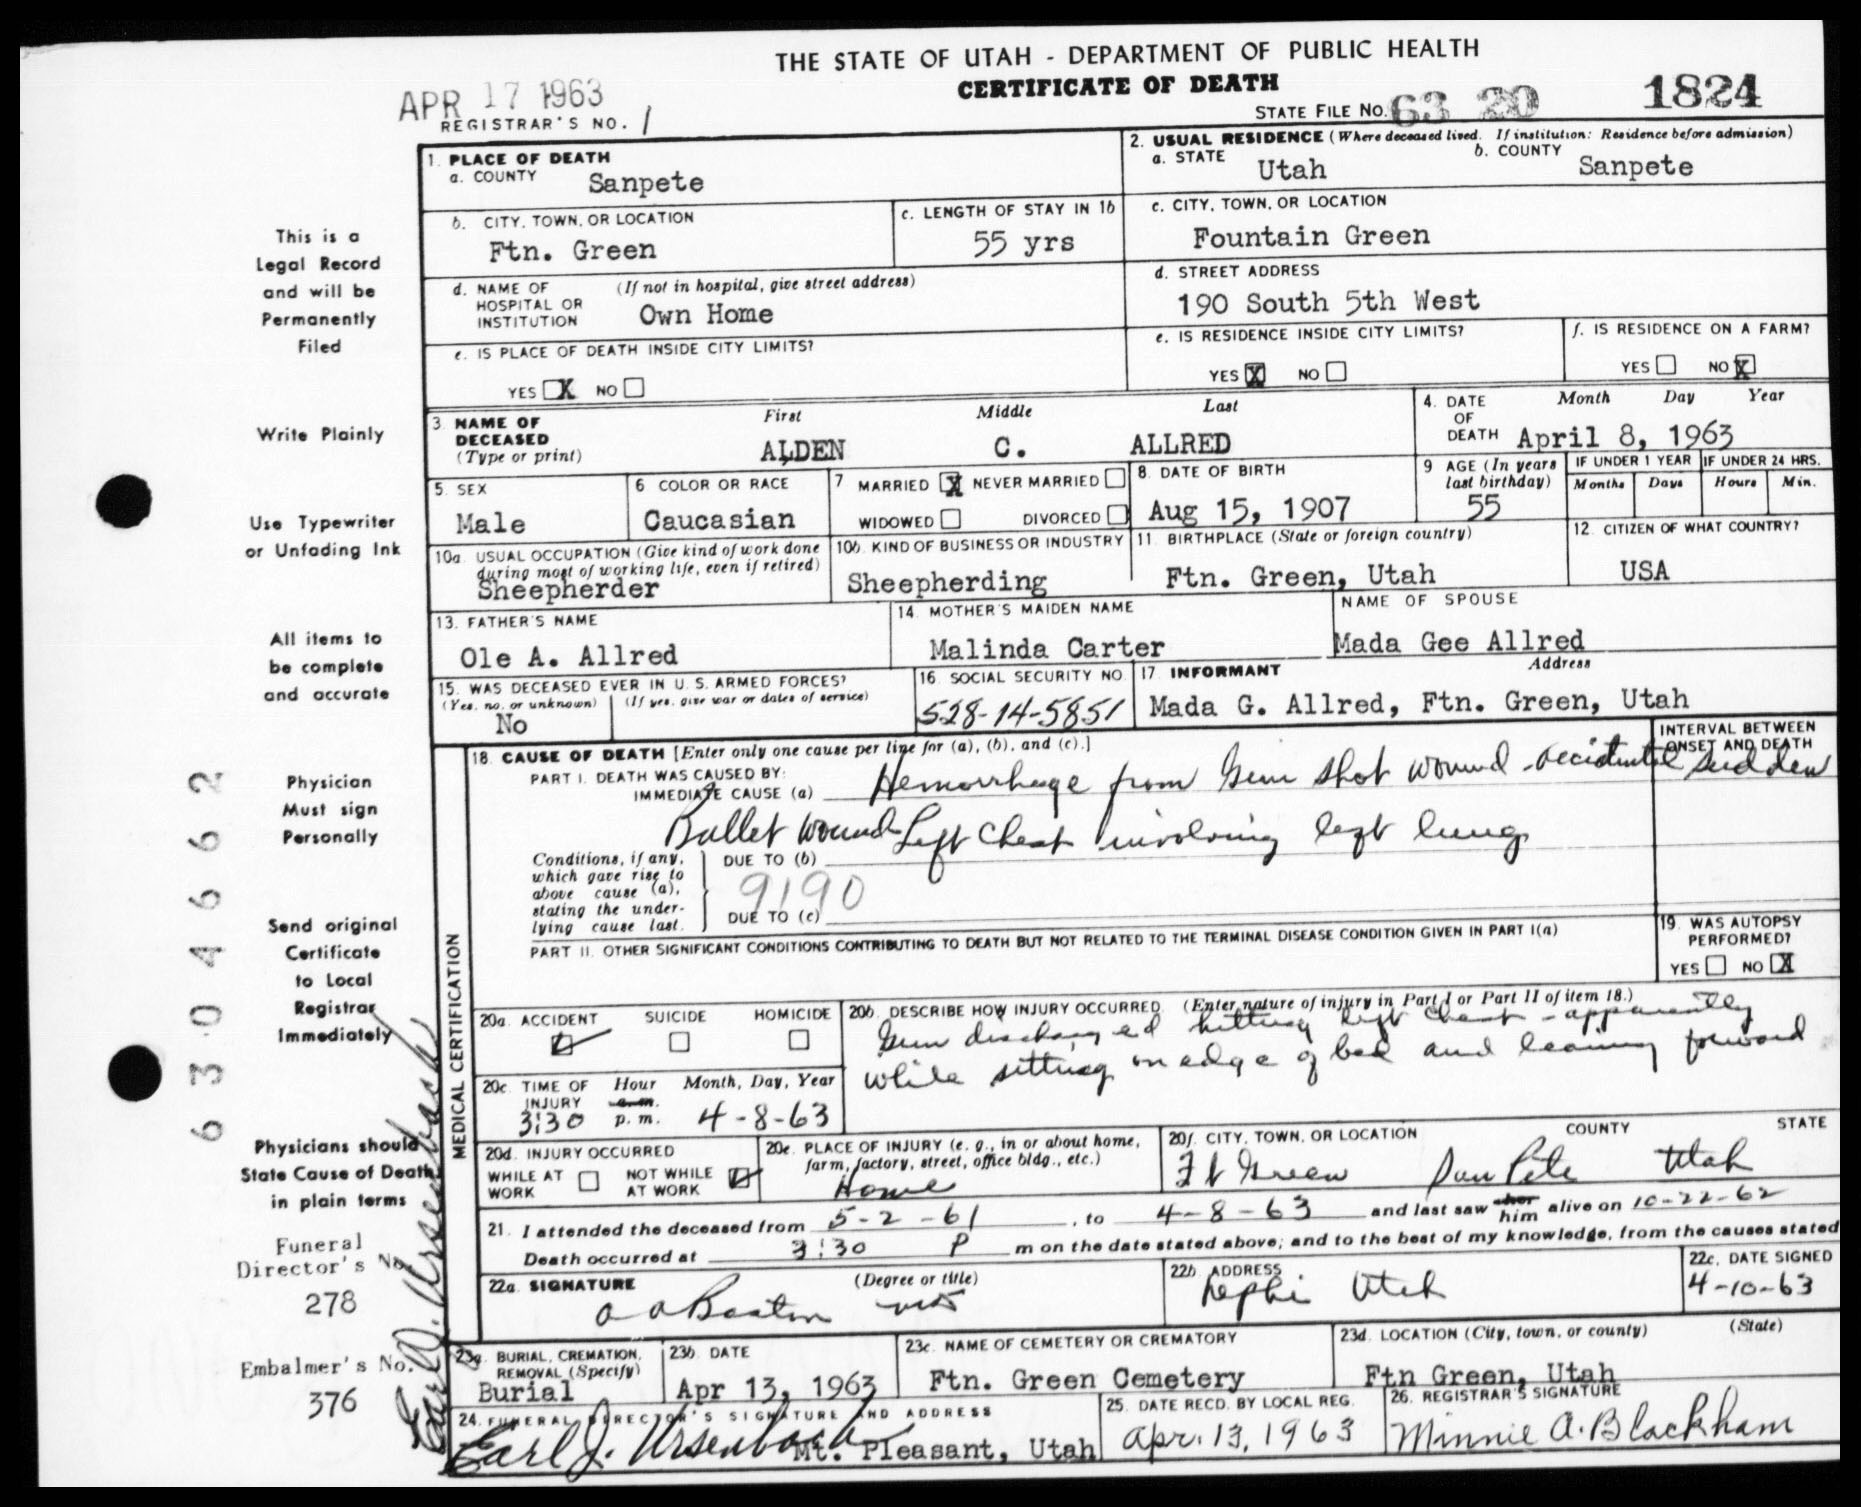 THE STATE OF UTAH - DEPARTMENT OF PUBLIC HEALTH
CERTIFICATE OF DEATH
APR 17 1963
REGISTRAR'S NO. 1
STATE FILE NO. 63 20 1824
This is a
Legal Record
and will be
Permanently
Filed
Write Plainly
Use Typewriter
or Unfading Ink
All items to
be complete
and accurate
Physician
Must sign
Personally
Send original
Certificate
to Local
Registrar
Immediately
Physicians should
State Cause of Death
in plain terms
Funeral
Director's No.
278
Embalmer's No.
376
63 04662
1. PLACE OF DEATH
a. COUNTY Sanpete
2. USUAL RESIDENCE (Where deceased lived. If institution: Residence before admission)
a. STATE Utah b. COUNTY Sanpete
b. CITY, TOWN, OR LOCATION
Ftn. Green
c. LENGTH OF STAY IN 1b
55 yrs
c. CITY, TOWN, OR LOCATION
Fountain Green
d. NAME OF HOSPITAL OR INSTITUTION (If not in hospital, give street address)
Own Home
d. STREET ADDRESS
190 South 5th West
e. IS PLACE OF DEATH INSIDE CITY LIMITS?
YES X NO
e. IS RESIDENCE INSIDE CITY LIMITS?
YES X NO
f. IS RESIDENCE ON A FARM?
YES NO X
3. NAME OF DECEASED (Type or print)
First Middle Last
ALDEN C. ALLRED
4. DATE OF DEATH Month Day Year
April 8, 1963
5. SEX
Male
6 COLOR OR RACE
Caucasian
7 MARRIED X NEVER MARRIED
WIDOWED DIVORCED
8. DATE OF BIRTH
Aug 15, 1907
9 AGE (In years last birthday)
55
IF UNDER 1 YEAR
Months Days
IF UNDER 24 HRS.
Hours Min.
10a. USUAL OCCUPATION (Give kind of work done during most of working life, even if retired)
Sheepherder
10b. KIND OF BUSINESS OR INDUSTRY
Sheepherding
11. BIRTHPLACE (State or foreign country)
Ftn. Green, Utah
12. CITIZEN OF WHAT COUNTRY?
USA
13. FATHER'S NAME
Ole A. Allred
14. MOTHER'S MAIDEN NAME
Malinda Carter
NAME OF SPOUSE
Mada Gee Allred
15. WAS DECEASED EVER IN U. S. ARMED FORCES?
(Yes, no, or unknown) (If yes, give war or dates of service)
No
16. SOCIAL SECURITY NO.
528-14-5851
17. INFORMANT Address
Mada G. Allred, Ftn. Green, Utah
MEDICAL CERTIFICATION
18. CAUSE OF DEATH [Enter only one cause per line for (a), (b), and (c).]
INTERVAL BETWEEN ONSET AND DEATH
PART I. DEATH WAS CAUSED BY:
IMMEDIATE CAUSE (a) Hemorrhage from Gun shot wound - accidental sudden
Bullet wound Left Chest involving left lung
Conditions, if any, which gave rise to above cause (a), stating the underlying cause last.
DUE TO (b)
9190
DUE TO (c)
PART II. OTHER SIGNIFICANT CONDITIONS CONTRIBUTING TO DEATH BUT NOT RELATED TO THE TERMINAL DISEASE CONDITION GIVEN IN PART I(a)
19. WAS AUTOPSY PERFORMED?
YES NO X
20a. ACCIDENT SUICIDE HOMICIDE
20b. DESCRIBE HOW INJURY OCCURRED. (Enter nature of injury in Part I or Part II of item 18.)
Gun discharged hitting left chest - apparently
while sitting on edge of bed and leaning forward
20c. TIME OF INJURY Hour Month, Day, Year
3:30 a.m. p.m. 4-8-63
20d. INJURY OCCURRED
WHILE AT WORK NOT WHILE AT WORK
20e. PLACE OF INJURY (e. g., in or about home, farm, factory, street, office bldg., etc.)
Home
20f. CITY, TOWN, OR LOCATION COUNTY STATE
Ft Green San Pete Utah
21. I attended the deceased from 5-2-61, to 4-8-63 and last saw her him alive on 10-22-62
Death occurred at 3:30 P m on the date stated above; and to the best of my knowledge, from the causes stated
22a. SIGNATURE (Degree or title)
22b. ADDRESS
Nephi Utah
22c. DATE SIGNED
4-10-63
23a. BURIAL, CREMATION, REMOVAL (Specify)
Burial
23b. DATE
Apr 13, 1963
23c. NAME OF CEMETERY OR CREMATORY
Ftn. Green Cemetery
23d. LOCATION (City, town, or county) (State)
Ftn Green, Utah
24. FUNERAL DIRECTOR'S SIGNATURE AND ADDRESS
Earl J. Ursenbach Mt. Pleasant, Utah
25. DATE RECD. BY LOCAL REG.
Apr. 13, 1963
26. REGISTRAR'S SIGNATURE
Minnie A. Blackham